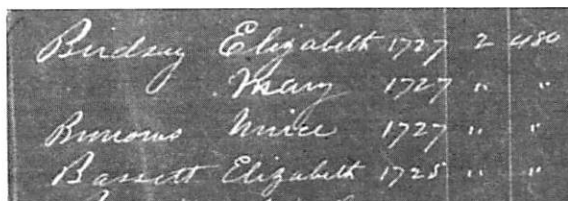 Birdsey Elizabeth 1727 2 480
Mary 1727 " "
Burrows Unice 1727 " "
Bassett Elizabeth 1725 " "